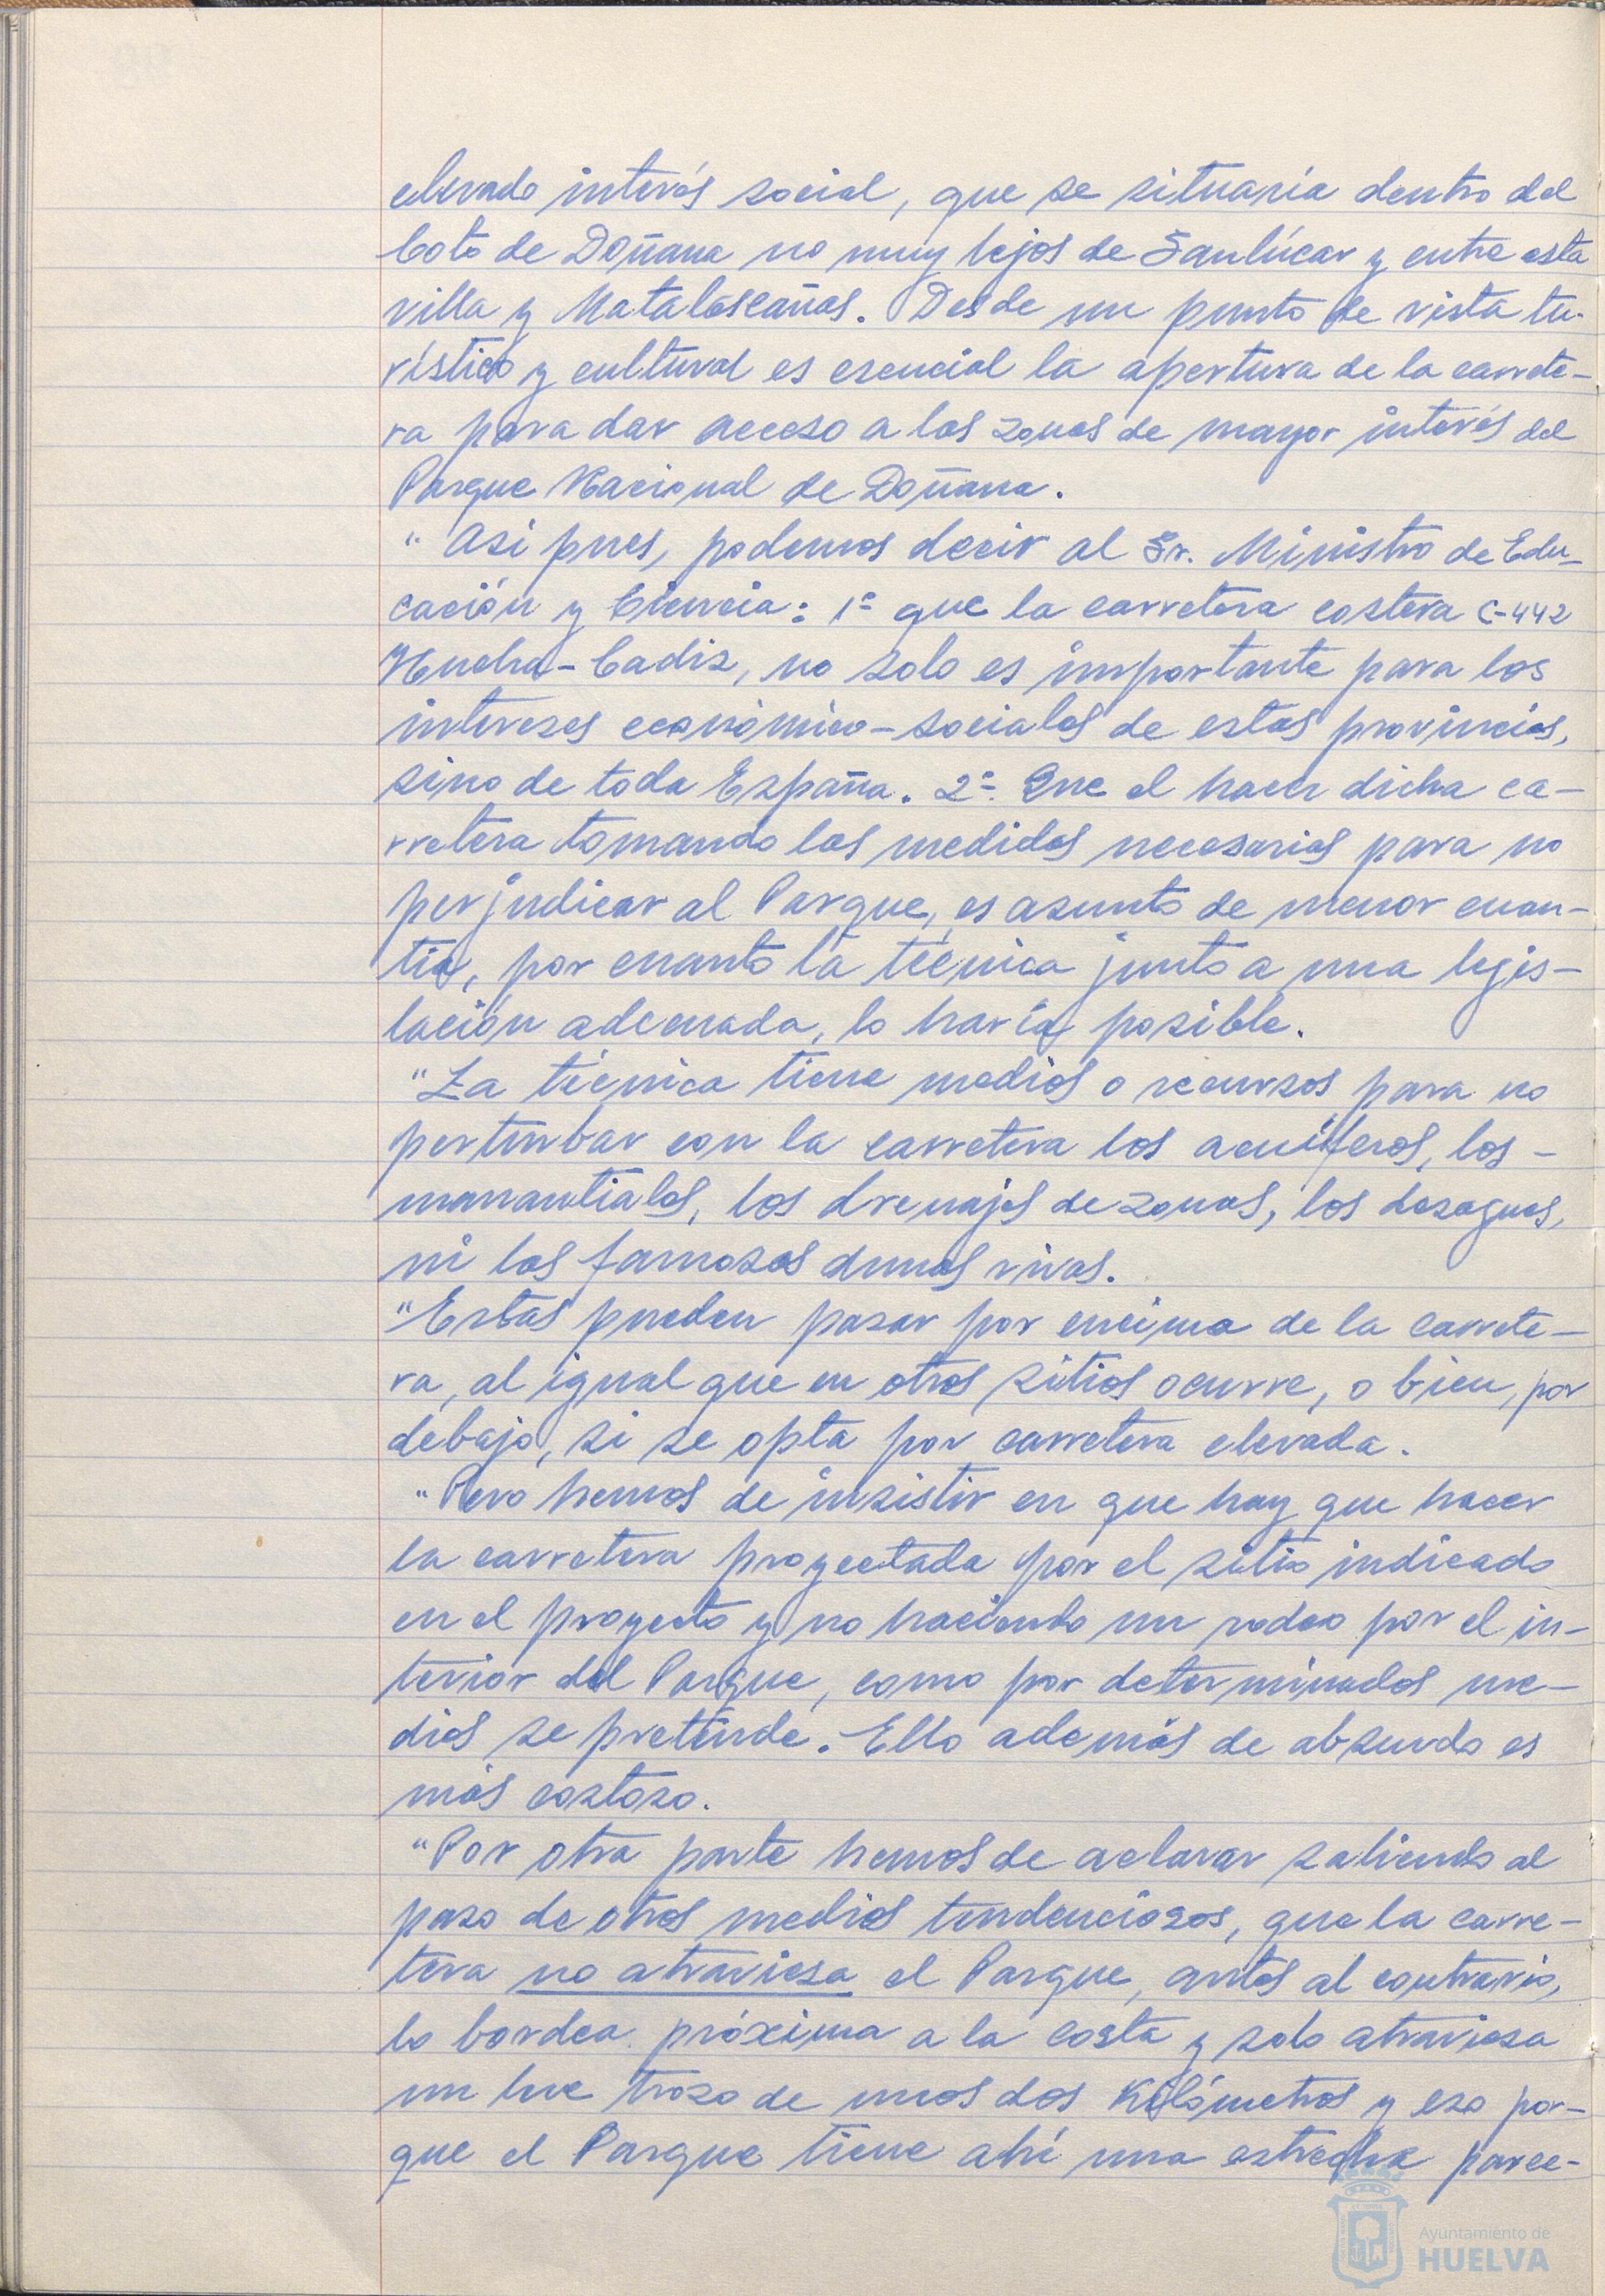 elevado interés social, que se situaría dentro del
Coto de Doñana no muy lejos de Sanlúcar y entre esta
villa y Matalascañas. Desde un punto de vista tu-
rístico y cultural es esencial la apertura de la carrete-
ra para dar acceso a las zonas de mayor interés del
Parque Nacional de Doñana.
" Asi pues, podemos decir al Sr. Ministro de Edu-
cación y Ciencia: 1º que la carretera costera C-442
Huelva-Cadiz, no solo es importante para los
intereses económico-sociales de estas provincias,
sino de toda España. 2º. Que el hacer dicha ca-
rretera tomando las medidas necesarias para no
perjudicar al Parque, es asunto de menor cuan-
tía, por cuanto la técnica junto a una legis-
lación adecuada, lo haría posible.
"La técnica tiene medios o recursos para no
perturbar con la carretera los acuíferos, los -
manantiales, los drenajes de zonas, los desagues,
ni las famosas dunas vivas.
"Estas pueden pasar por encima de la carrete-
ra, al igual que en otros sitios ocurre, o bien, por
debajo, si se opta por carretera elevada.
"Pero hemos de insistir en que hay que hacer
la carretera proyectada por el sitio indicado
en el proyecto y no haciendo un rodeo por el in-
terior del Parque, como por determinados me-
dios se pretende. Ello además de absurdo es
más costoso.
"Por otra parte hemos de aclarar saliendo al
paso de otros medios tendenciosos, que la carre-
tera no atraviesa el Parque, antes al contrario,
lo bordea próxima a la costa y solo atraviesa
un leve trozo de unos dos Kilómetros y eso por-
que el Parque tiene ahí una estrecha parce-
Ayuntamiento de
HUELVA